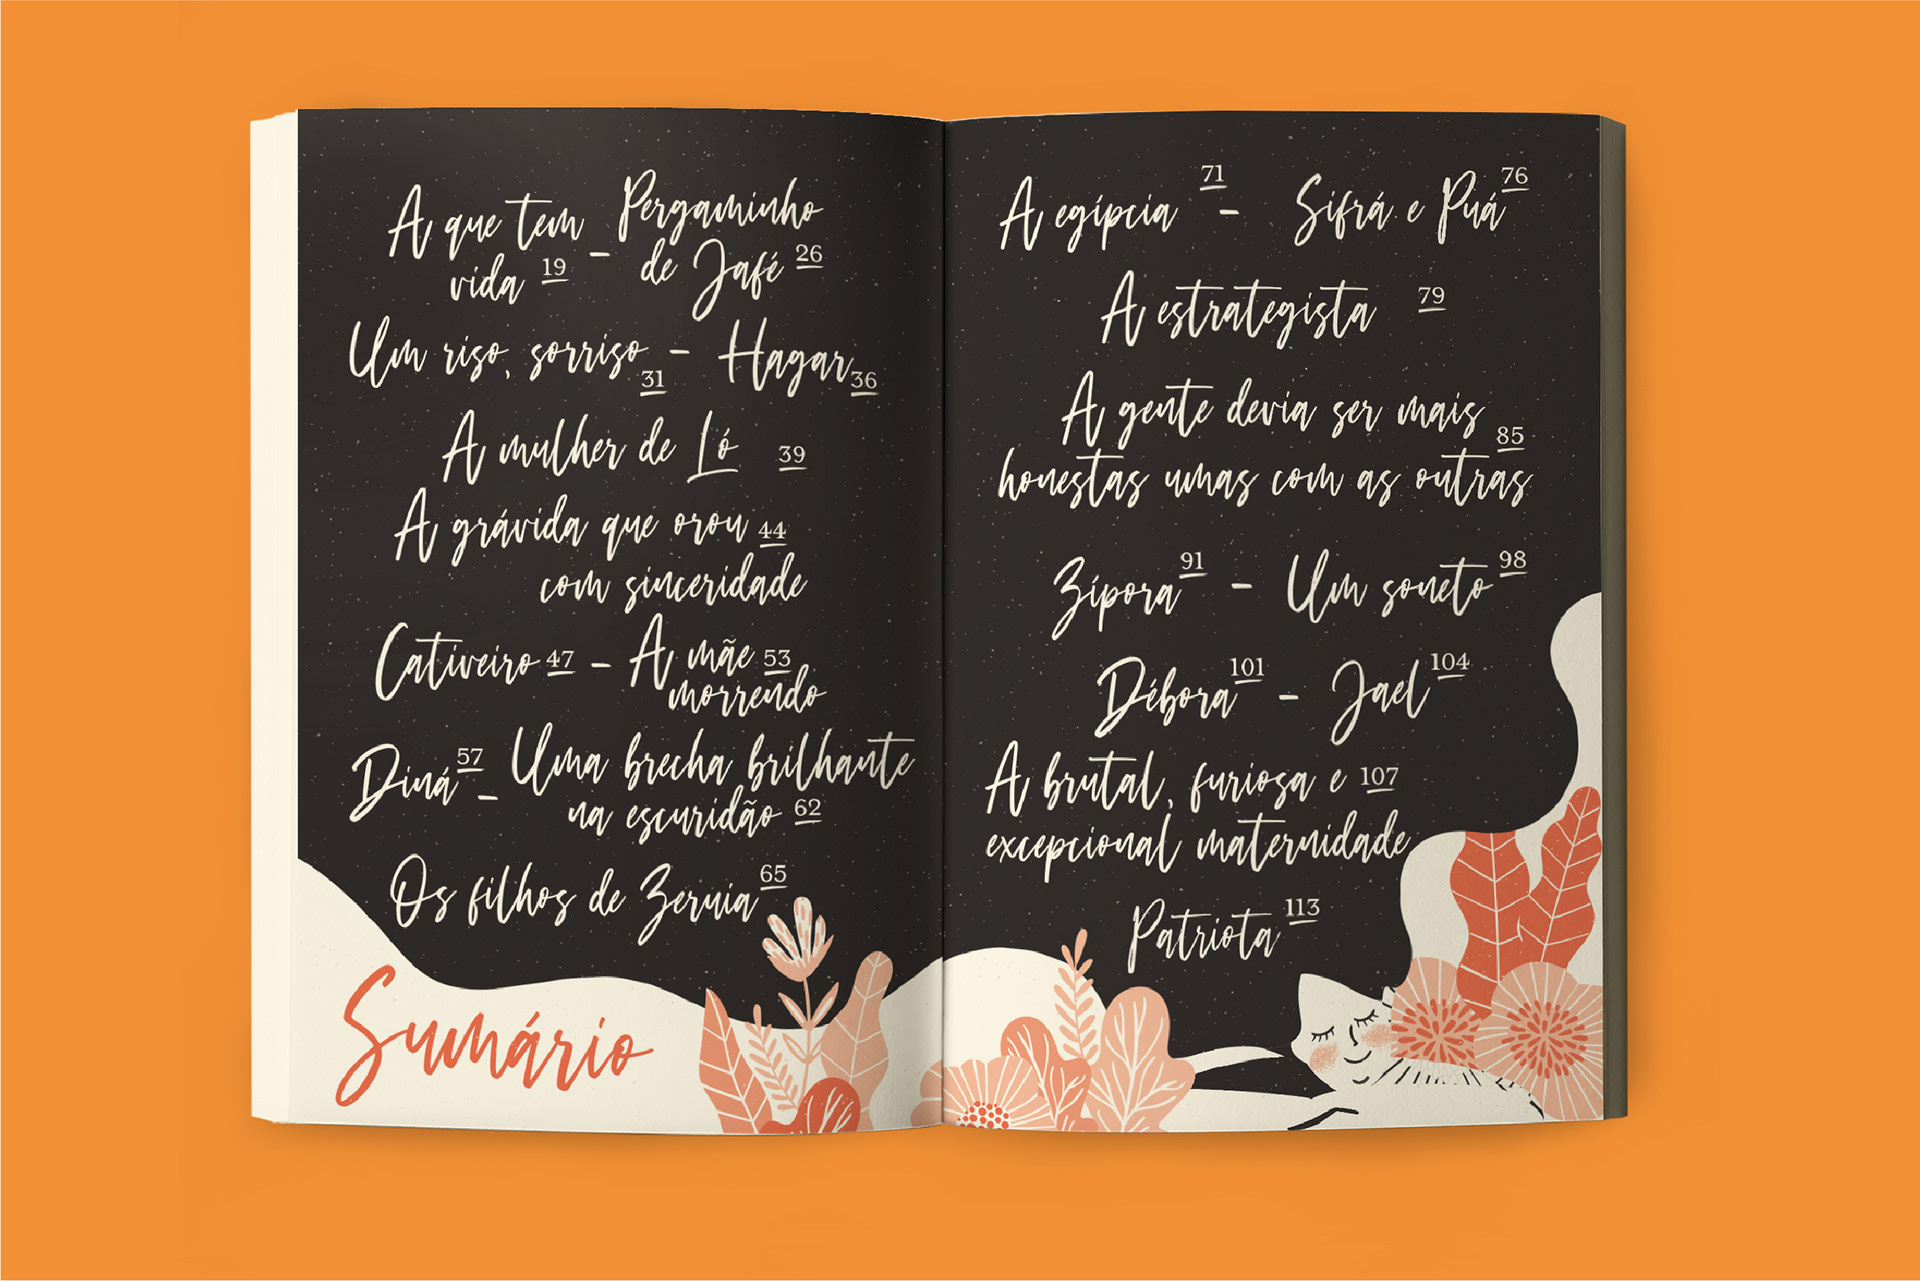 A que tem vida 19 - Pergaminho de Jafé 26
Um riso, sorriso 31 - Hagar 36
A mulher de Ló 39
A grávida que orou 44
com sinceridade
Cativeiro 47 - A mãe 53
morrendo
Diná 57 - Uma brecha brilhante
na escuridão 62
Os filhos de Zeruia 65
Sumário
A egípcia 71 - Sifrá e Puá 76
A estrategista 79
A gente devia ser mais 85
honestas umas com as outras
Zípora 91 - Um soneto 98
Débora 101 - Jael 104
A brutal, furiosa e 107
excepcional maternidade
Patriota 113